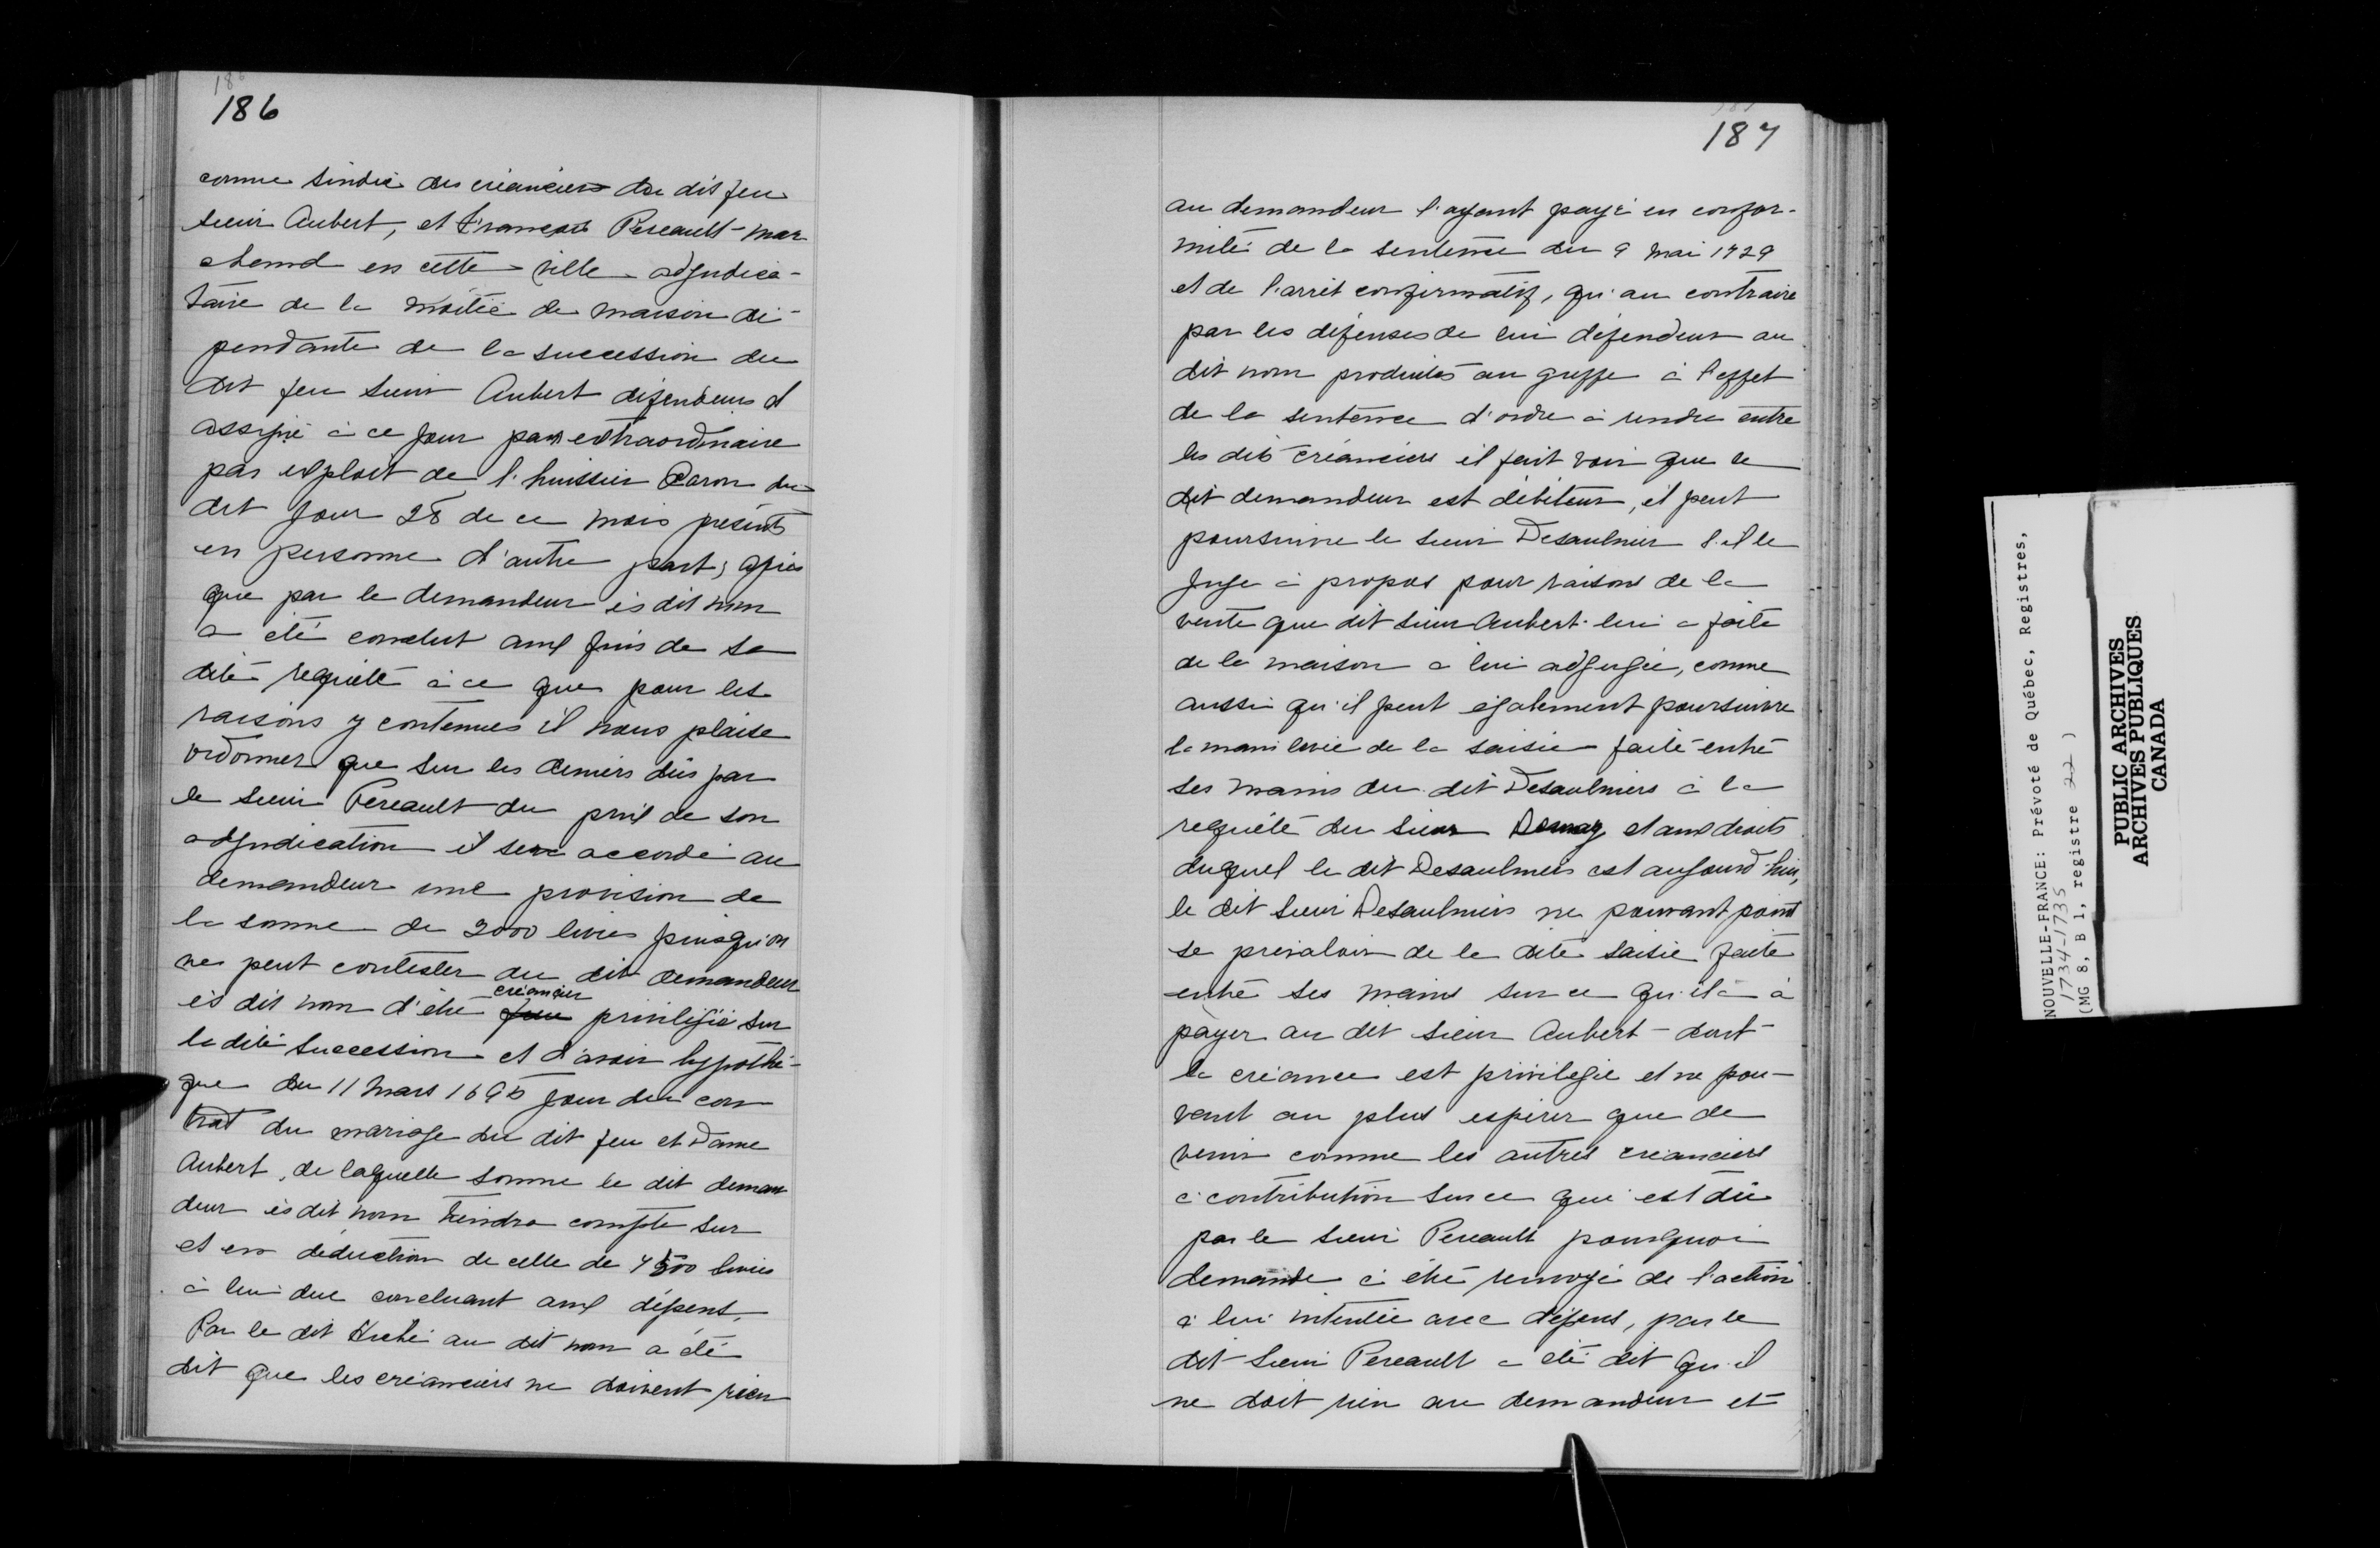 186
comme sindic des créanciers du dit feu
sieur Aubert, et François Pereault mar
chand en cette ville adjudica-
taire de la moitié de maison dé-
pendante de la succession du
dit feu sieur Aubert défendeurs et
assigné à ce jour extraordinaire
par exploit de l'huissier Caron du
dit jour 28 de ce mois présents
en personne d'autre part; après
que par le demandeur ès dit nom
a été conclut aux fins de sa
dite requête à ce que pour les
raisons y contenues il nous plaise
ordonner que sur les deniers dûs par
le sieur Pereault du prix de son
adjudication il sera accordé au
demandeur une provision de
la somme de 2000 livres puisqu'on
ne peut contester au dit demandeur
ès dit nom d'être créancier privilégié sur
la dite succession et d'avoir hypothè-
que du 11 mars 1695 jour du con
trat du mariage du dit feu et Dame
Aubert, de laquelle somme le dit deman
deur ès dit nom tiendra compte sur
et en déduction de celle de 4500 livres
à lui due concluant aux dépens.
Par le dit Hiché au dit nom a été
dit que les créanciers ne doivent rien
187
au demandeur l'ayant payé en confor-
mité de la sentence du 9 mai 1729
et de l'arrêt confirmatif, qu'au contraire
par les défenses de lui défendeur au
dit nom produites au greffe à l'effet
de la sentence d'ordre à rendre entre
les dits créanciers il fait voir que le
dit demandeur est débiteur, il peut
poursuivre le sieur Desaulnier s'il le
juge à propos pour raisons de la
vente que dit sieur Aubert lui a faite
de la maison à lui adjugée, comme
aussi qu'il peut également poursuivre
la main levée de la saisie faite entre
ses mains du dit Desaulniers à la
requête du sieur et aux droits
duquel le dit Desaulniers est aujourd'hui,
le dit sieur Desaulniers ne pouvant point
se prévaloir de la dite saisie faite
entre ses mains sur ce qu'il a à
payer au dit sieur Aubert - dont
la créance est privilégié et ne pou-
vant au plus espérer que de
venir comme les autres créanciers
à contribution sur ce qui est dû
par le sieur Pereault pourquoi
demande à être renvoyé de l'action
à lui intentée avec dépens, par le
dit sieur Pereault a été dit qu'il
ne doit rien au demandeur et
NOUVELLE-FRANCE: Prévoté de Québec, Registres,
1734-1735
(MG 8, B 1, registre 22 )
PUBLIC ARCHIVES
ARCHIVES PUBLIQUES
CANADA